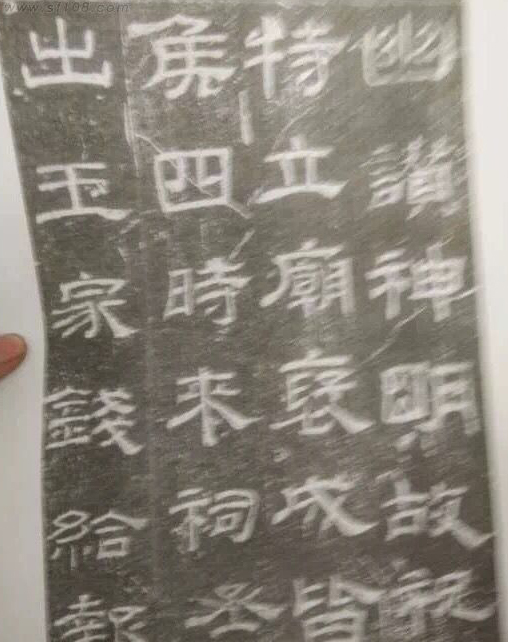 www.sf108.com
幽讚神明故祝
特立廟褒成皆
侯四時來祠丞
出王家錢給報